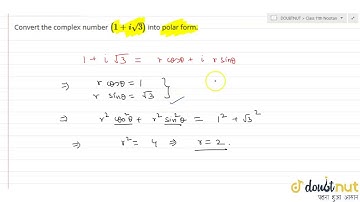 Convert the complex number (1+i√3) into polar form.
1 + i √3 = r cosθ + i r sinθ
⇒ r cosθ = 1
r sinθ = √3
⇒ r² cos²θ + r² sin²θ = 1² + √3²
⇒ r² = 4 ⇒ r = 2.
doubtnut
पढ़ना हुआ आसान